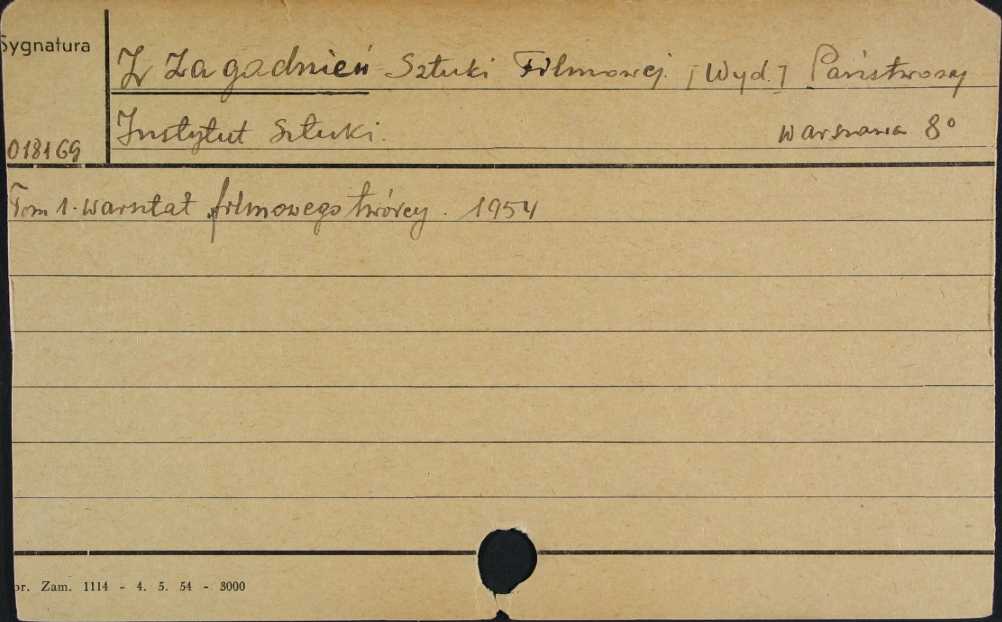 Sygnatura
Z Zagadnień Sztuki Filmowej. [Wyd.] Państwowy
Instytut Sztuki. Warszawa 8°
018169
Tom 1. Warsztat filmowego twórcy. 1954
or. Zam. 1114 - 4. 5. 54 - 3000